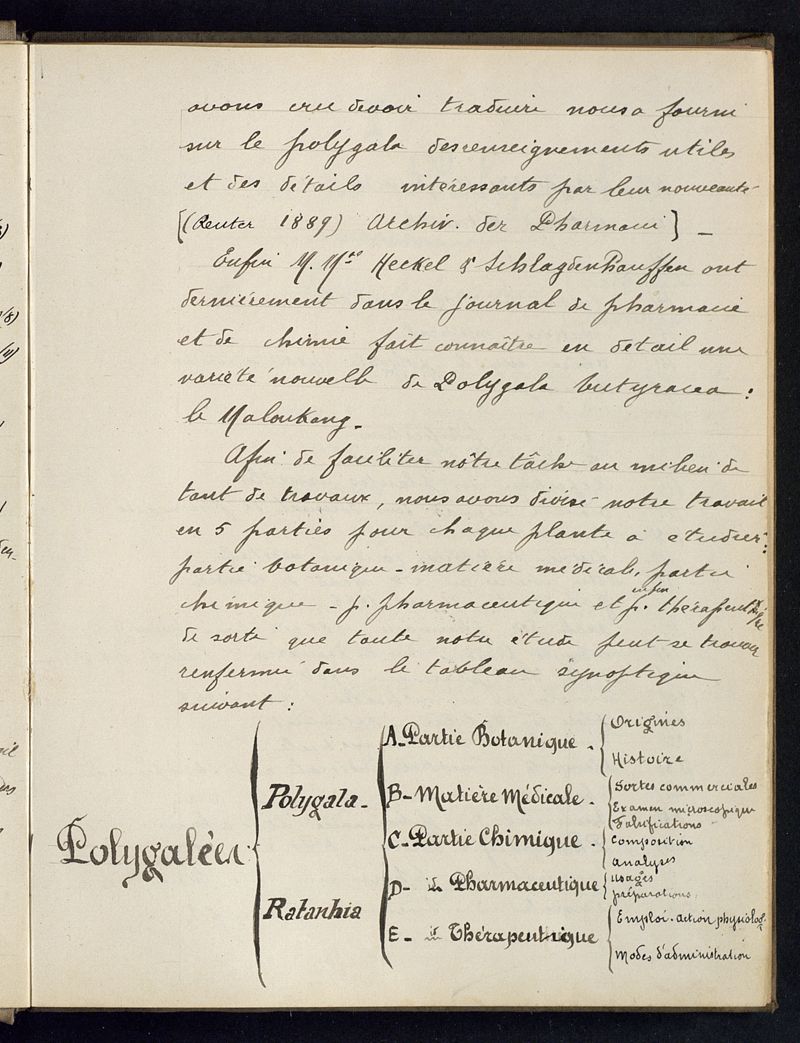 avons cru devoir traduire nous a fourni
sur le polygala des renseignements utiles
et des détails intéressants par leur nouveauté
[(Reuter 1889) Archiv. der Pharmacie] _
Enfin M. Mrs Heckel & Schlagdenhauffen ont
dernièrement dans le journal de pharmacie
et de chimie fait connaître en détail une
variété nouvelle de Polygala butyracea :
le Maloukang.
Afin de faciliter nôtre tâche au milieu de
tant de travaux, nous avons divisé notre travail
en 5 parties pour chaque plante à étudier :
partie botanique - matière médicale, partie
chimique - p. pharmaceutique et enfin p. thérapeutique
de sorte que toute notre étude peut se trouver
renfermée dans le tableau synoptique
suivant :
Polygalées
Polygala -
Ratanhia
A - Partie Botanique -
Origines
Histoire
B - Matière Médicale -
Sortes commerciales
Examen microscopique
Falsifications
C - Partie Chimique -
Composition
analyses
D - id Pharmaceutique
usages
préparations
E - id Thérapeutique
Emploi - action physiolog.
Modes d'administration